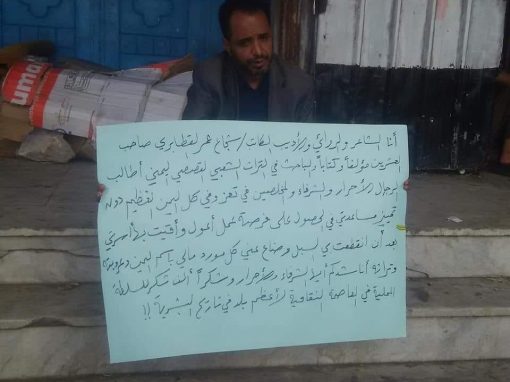 أنا الشاعر والروائي والأديب الكاتب / شجاع عمر القطابري صاحب
العشرين مؤلفاً وكتاباً والباحث في التراث الشعبي القصصي اليمني أطالب
الرجال الأحرار والشرفاء والمخلصين في تعز وفي كل اليمن العظيم دون
تمييز مساعدتي في الحصول على فرصة عمل أعول وأقيت بها أسرتي
بعد أن انقطعت بي السبل وضاع عني كل مورد مالي باسم اليمن وعروبته
وتراثه أناشدكم أيها الشرفاء والأحرار وشكراً ألف شكر للسلطة
المحلية في العاصمة الثقافية لأعظم بلد في تاريخ البشرية !!
uma